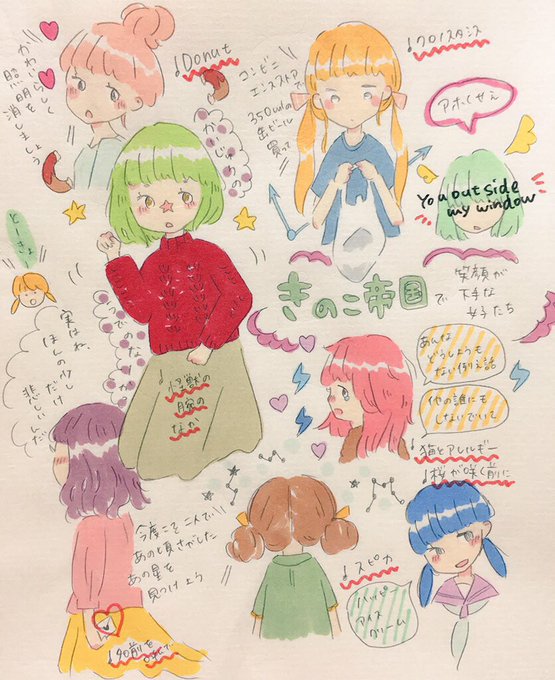 ♩Donut
かわいらしく
照明を
消しましょう
コンビニ
エンスストアで
350mlの
缶ビール
買って
♩クロノスタシス
アホくせえ
You outside
my window
かいじゅうの
とーきょ
きのこ帝国で
笑顔が
下手な
女子たち
実はね、
ほんの少し
だけ
悲しいんだ
うでのなか
怪獣の
腕の
なか
あんな
どうしようも
ない例え話
他の誰にも
しないでいて
♩猫とアレルギー
♩桜が咲く前に
今度こそ二人で
あの頃さがした
あの星を
見つけよう
♩スピカ
ハッピー
アイス
クリーム
♩夕日前を